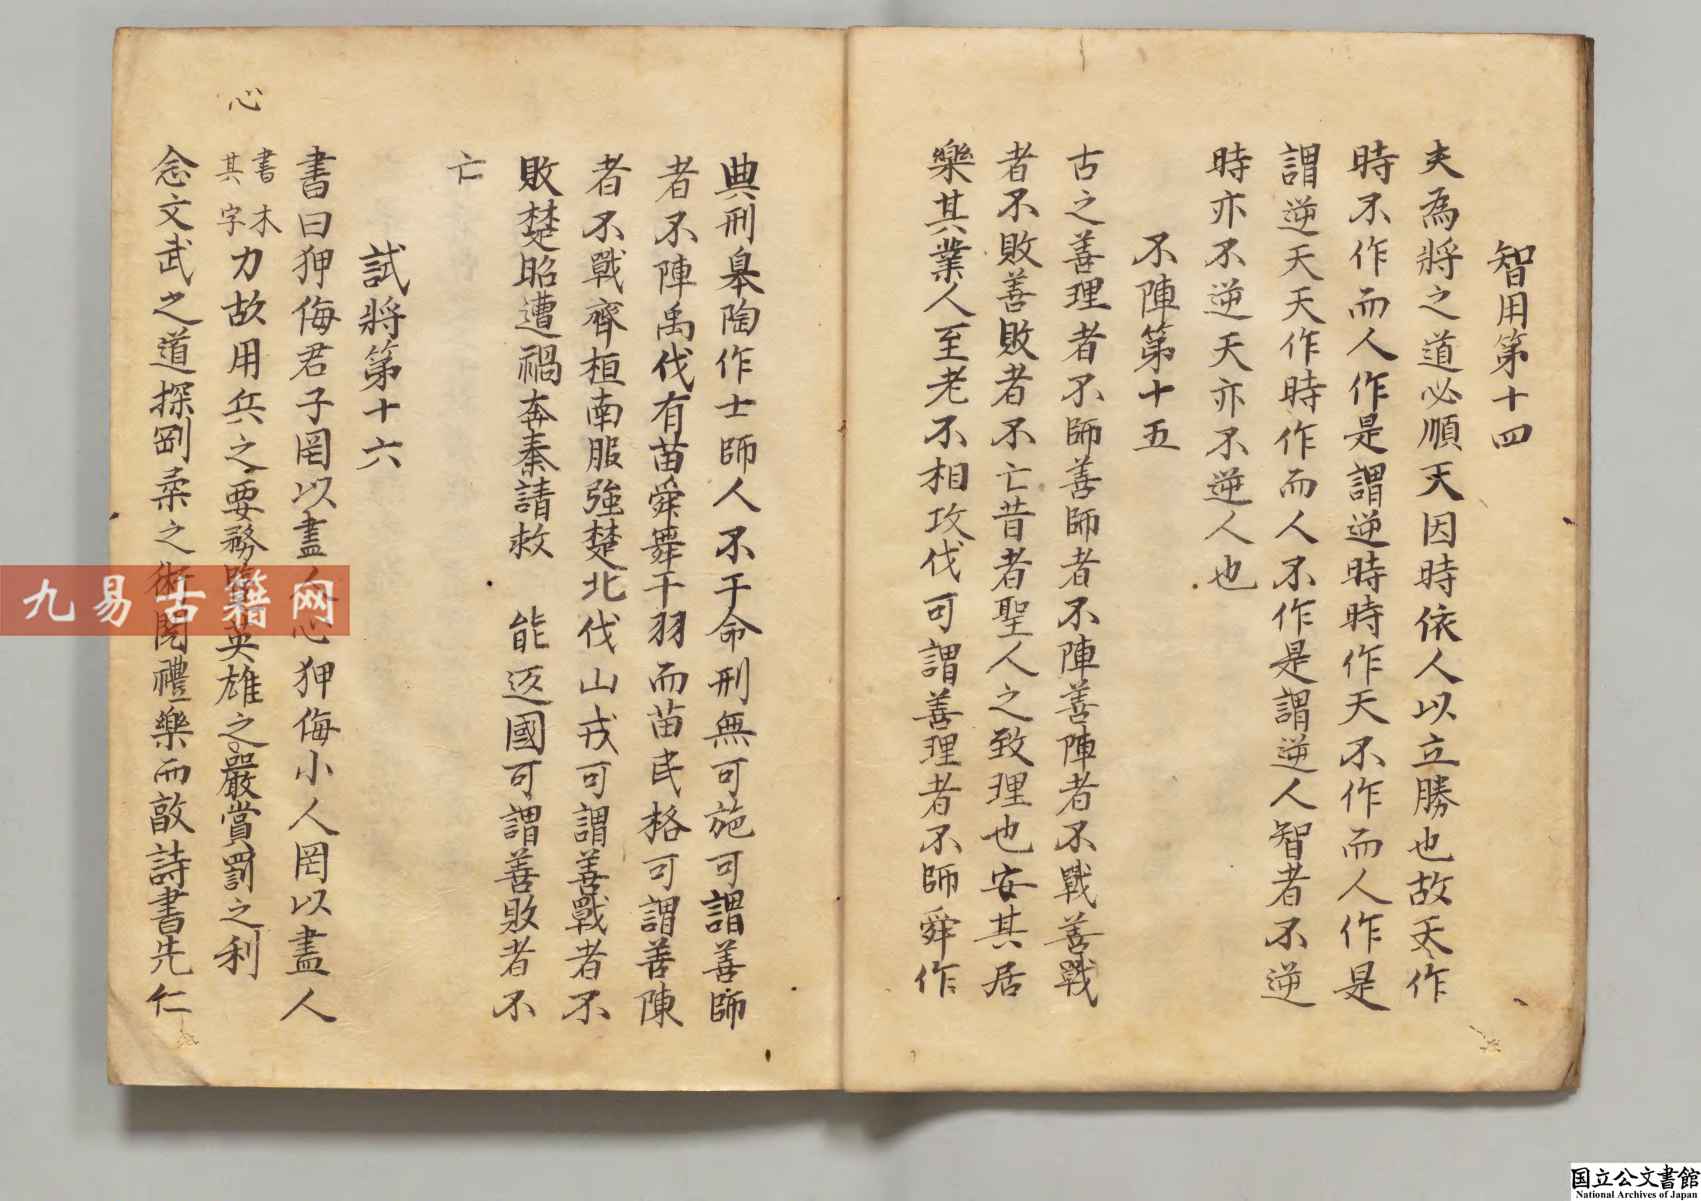 智用第十四
夫為將之道必順天因時依人以立勝也故天作
時不作而人作是謂逆時時作天不作而人作是
謂逆天天作時作而人不作是謂逆人智者不逆
時亦不逆天亦不逆人也
不陣第十五
古之善理者不師善師者不陣善陣者不戰善戰
者不敗善敗者不亡昔者聖人之致理也安其居
樂其業人至老不相攻伐可謂善理者不師舜作
典刑皐陶作士師人不干命刑無可施可謂善師
者不陣禹伐有苗舜舞干羽而苗民格可謂善陳
者不戰齊桓南服強楚北伐山戎可謂善戰者不
敗楚昭遭禍奔秦請救 能返國可謂善敗者不
亡
試將第十六
書曰狎侮君子罔以盡人心狎侮小人罔以盡人
書木
其字
力故用兵之要務攬英雄之嚴賞罰之利
心
念文武之道探剛柔之術閱禮樂而敦詩書先仁
九易古籍网
国立公文書館
National Archives of Japan